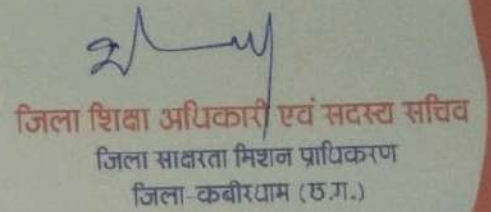 जिला शिक्षा अधिकारी एवं सदस्य सचिव
जिला साक्षरता मिशन प्राधिकरण
जिला-कबीरधाम (छ.ग.)